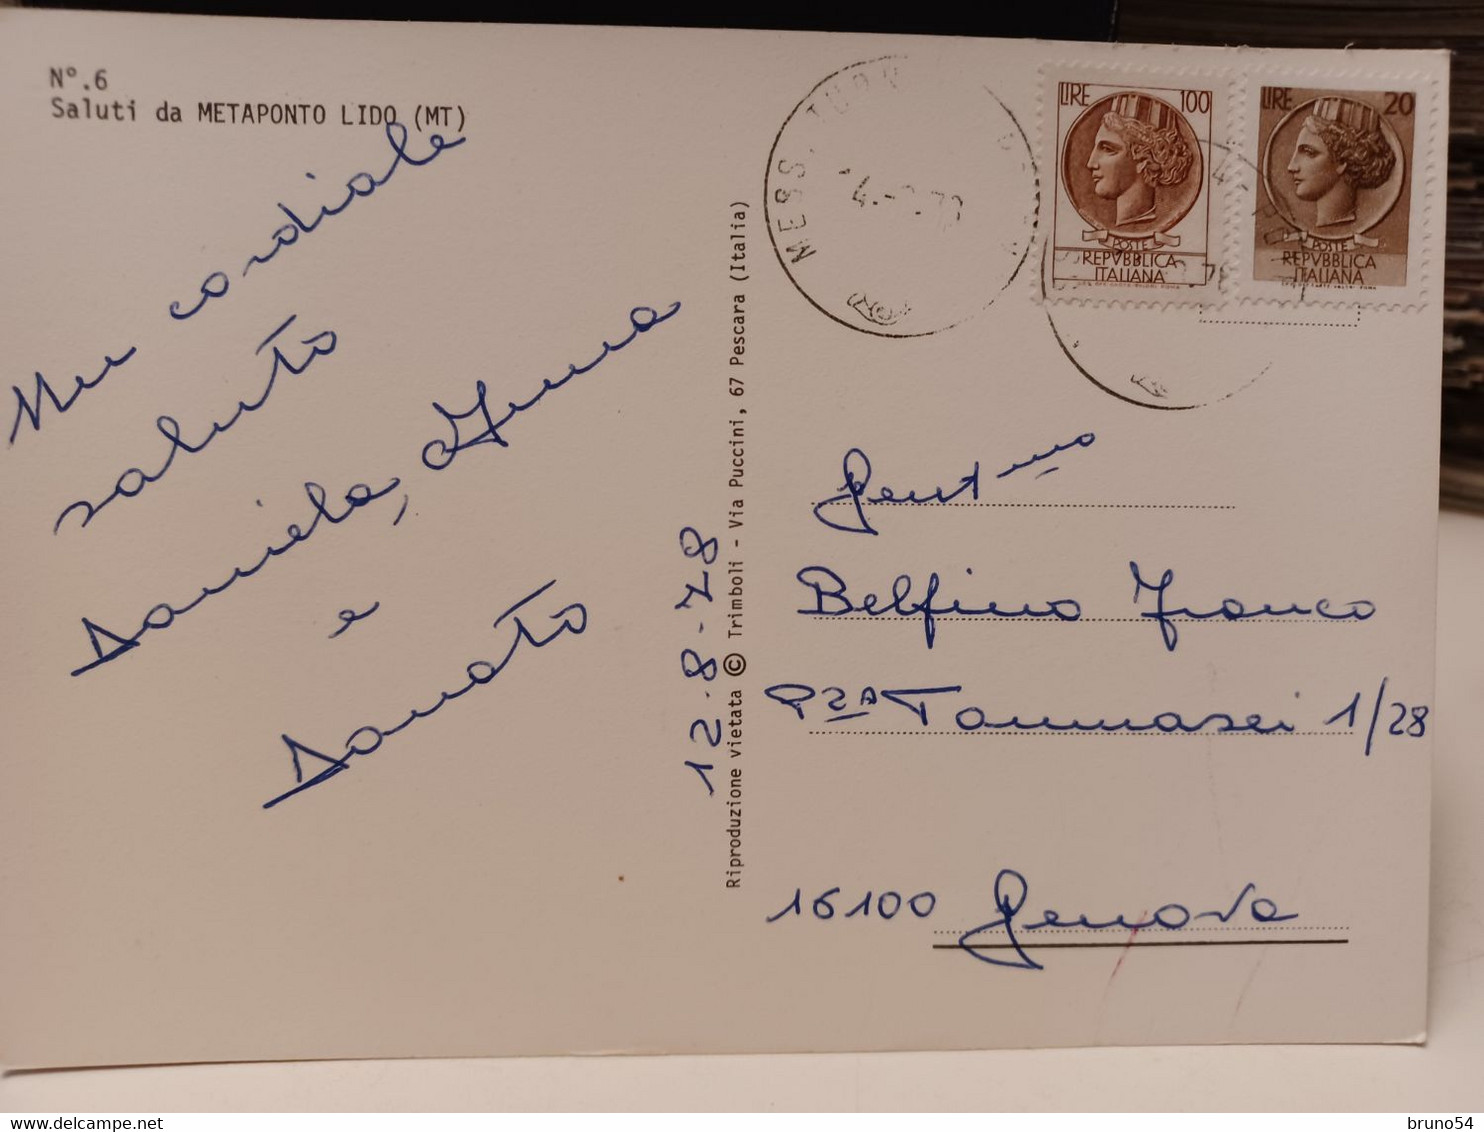 N°.6
Saluti da METAPONTO LIDO (MT)
Un cordiale
saluto
Daniela, Imma
e
Donato
12-8-78
Riproduzione vietata © Trimboli - Via Puccini, 67 Pescara (Italia)
LIRE 100
POSTE
REPVBBLICA
ITALIANA
LIRE 20
POSTE
REPVBBLICA
ITALIANA
Gent.mo
Belfino Franco
Pza Tommasei 1/28
16100 Genova
bruno54